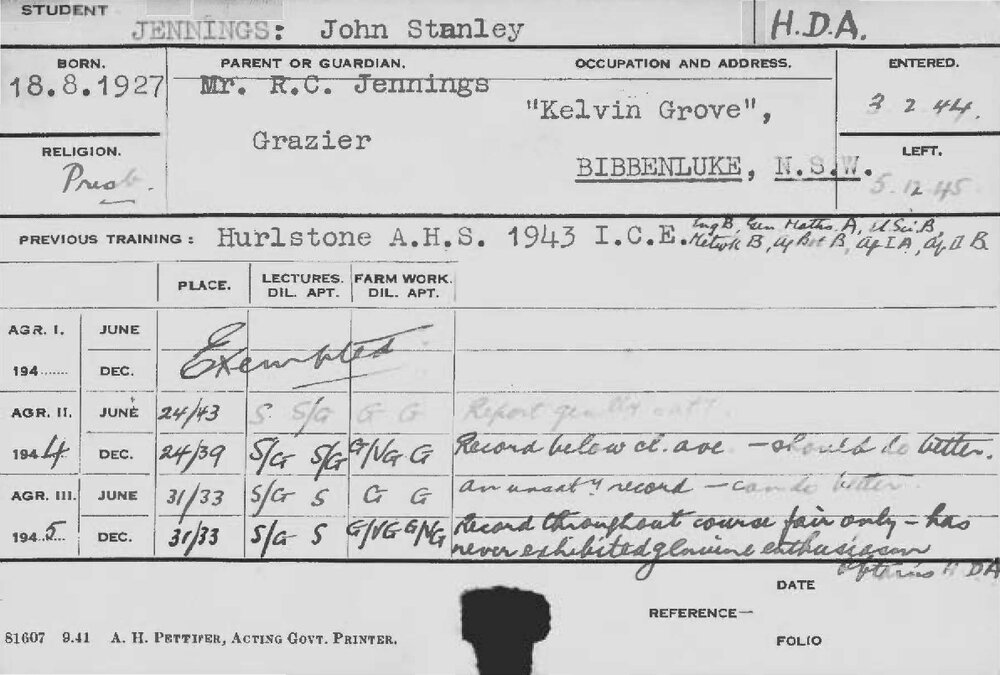 STUDENT
JENNINGS: John Stanley H.D.A.
BORN. PARENT OR GUARDIAN. OCCUPATION AND ADDRESS. ENTERED.
18.8.1927 Mr. R.C. Jennings "Kelvin Grove", 3 2 44.
Grazier
RELIGION. BIBBENLUKE, N.S.W. LEFT.
Presb. 5.12.45
PREVIOUS TRAINING: Hurlstone A.H.S. 1943 I.C.E. Eng B, Gen Maths. A, El Sci B,
Metwk B, Ag Bot B, Ag I A, Ag II B
PLACE. LECTURES. FARM WORK.
DIL. APT. DIL. APT.
AGR. I. JUNE Exempted
194....... DEC.
AGR. II. JUNE 24/43 S S/G G G Report
1944 DEC. 24/39 S/G S/G G/VG G Record below cl. ave. — should do better.
AGR. III. JUNE 31/33 S/G S G G an unsaty record — can do better.
1945 DEC. 31/33 S/G S G/VG G/VG Record throughout course fair only — has
never exhibited genuine enthusiasm
Obtains HDA
DATE
REFERENCE—
81607 9.41 A. H. PETTIFER, ACTING GOVT. PRINTER. FOLIO